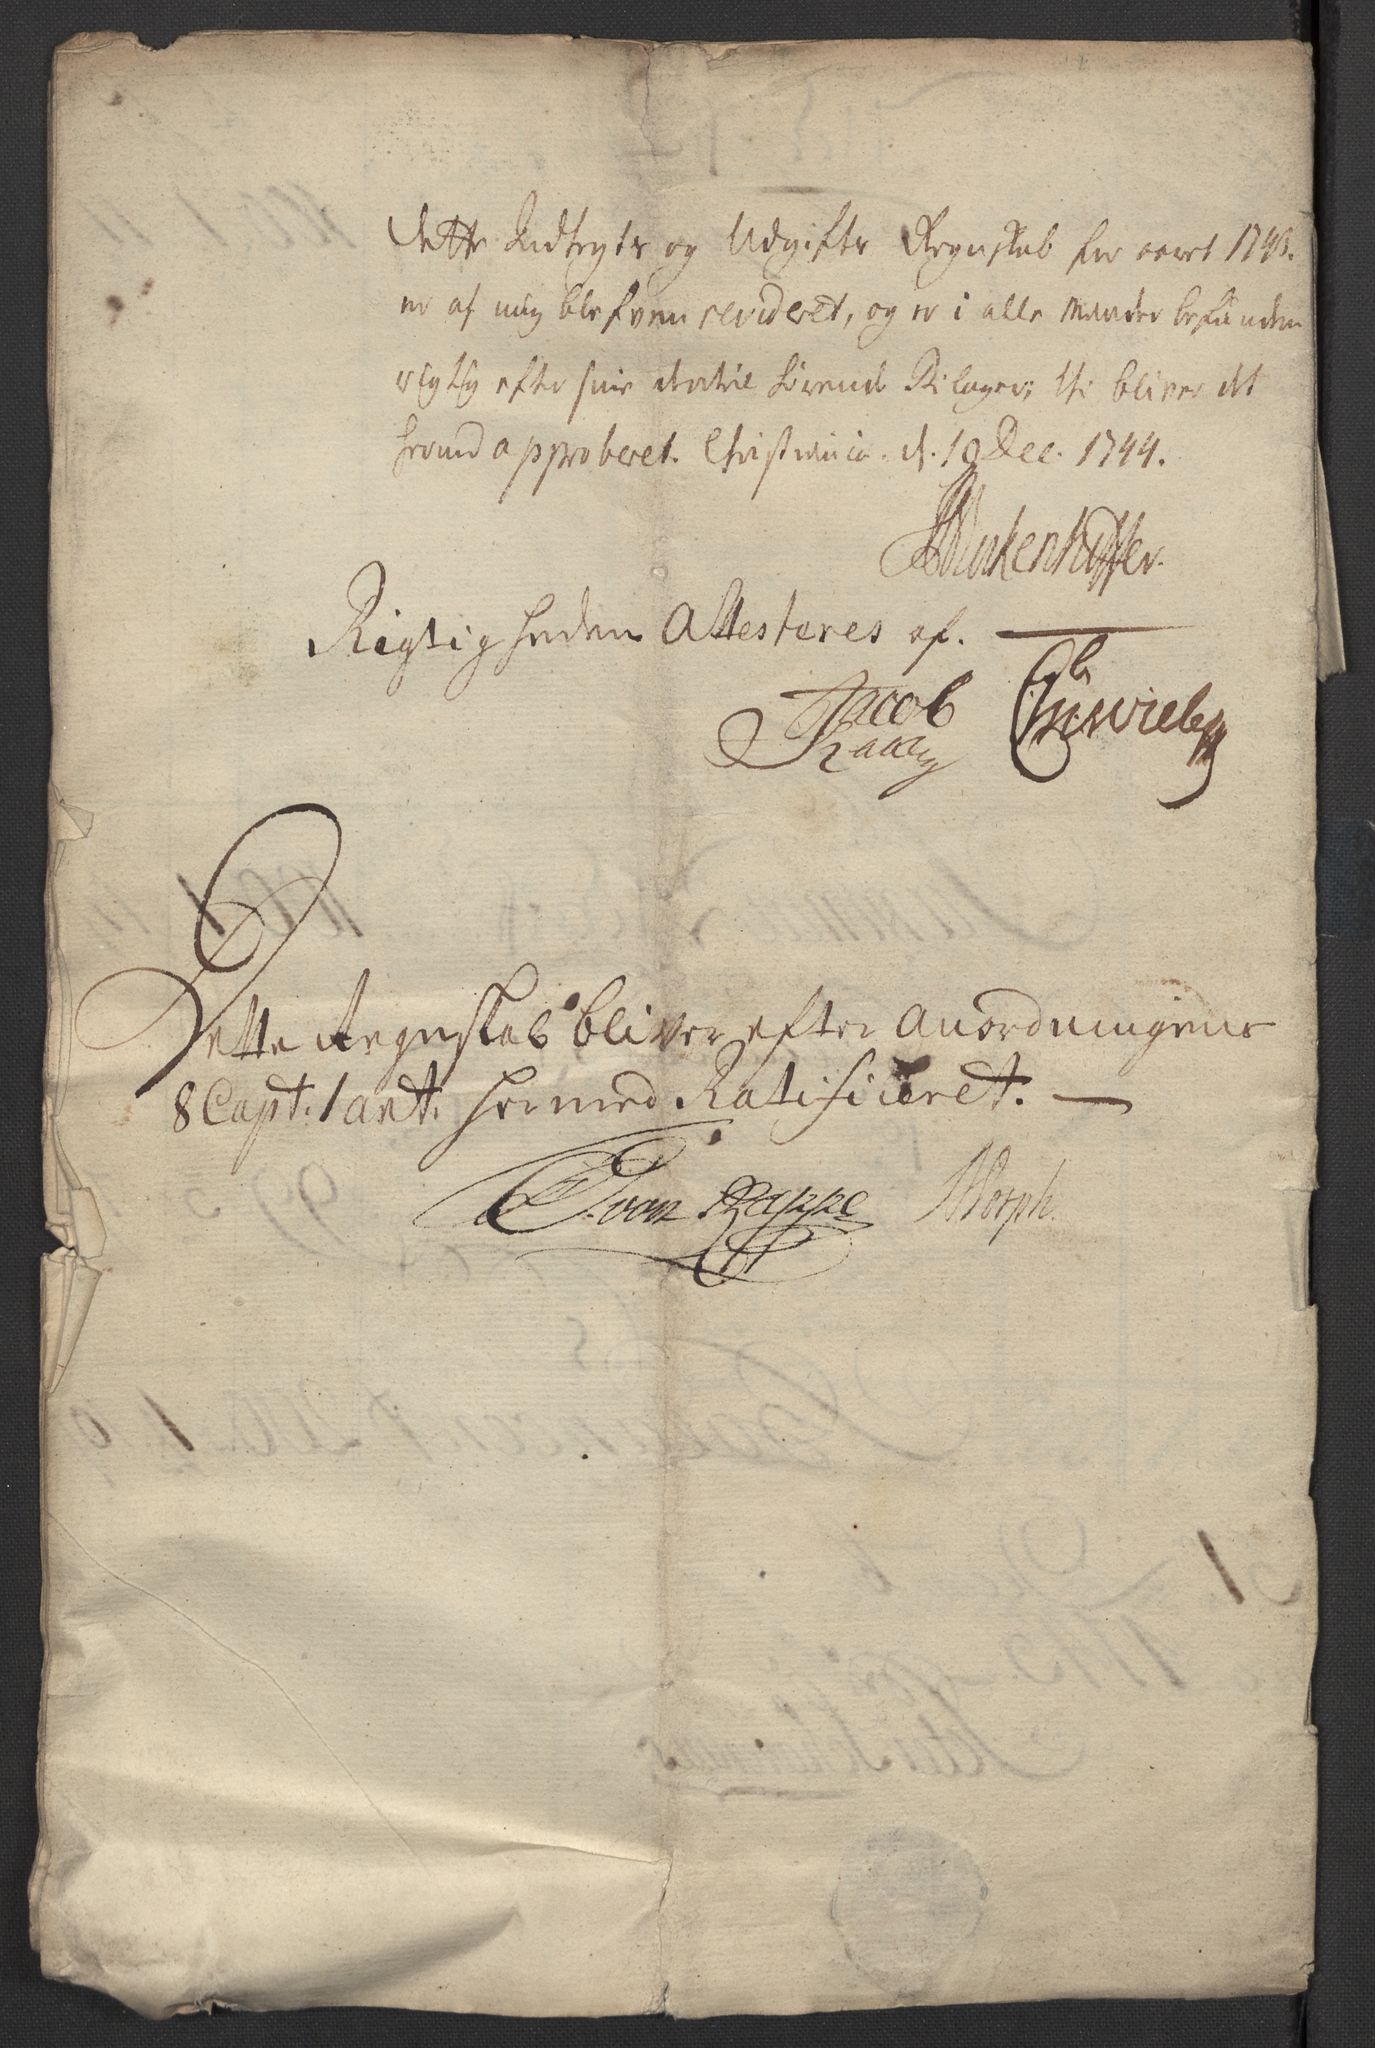 Dette Indtegts og Udgifts Regnskab for aaret 1743.
er af mig blefven revideret, og er i alle Maader befunden
rigtig efter sine dertil hørende Bilager; thi bliver det
hermed approberet. Christiania. d. 10 Dec. 1744.
Rigtigheden Attesteres af.
Jacob
Dette Regnskab bliver efter Anordningens
8 Capt: 1 art: hermed Ratificeret.
von Rappe Morph.